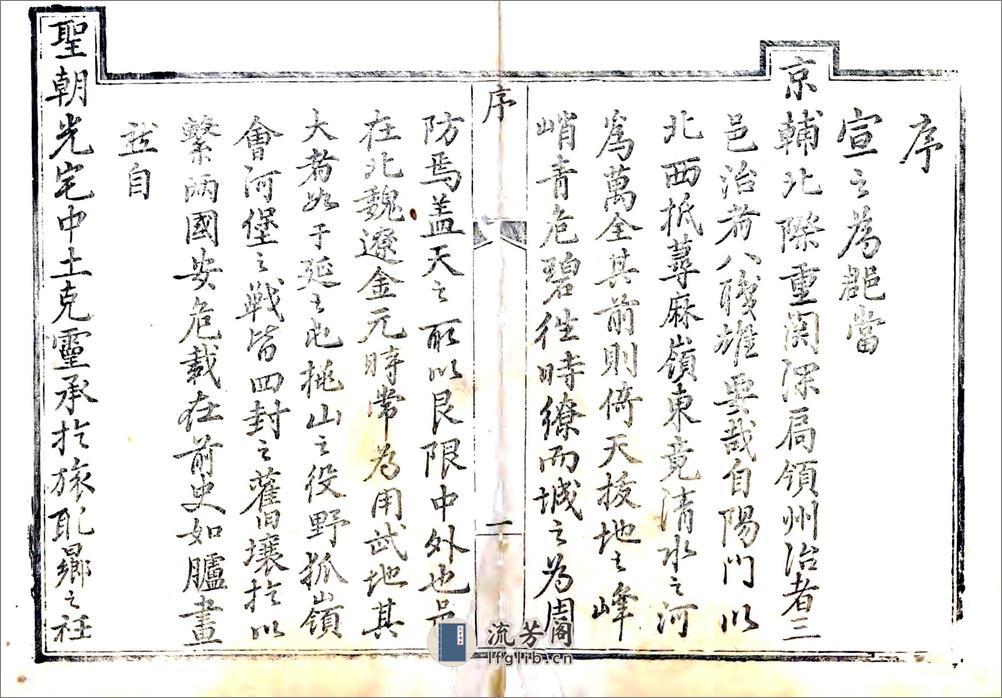 序
宣之為郡當
京輔北際重關深扃領州治者三
邑治者八雄要哉自陽門以
北西抵蕁麻嶺東竟清水之河
為萬全其前則倚天拔地之峰
峭青危碧徃時繚而城之為周
序
一
防焉蓋天之所以艮限中外也
在北魏遼金元時常為用武地其
大者如于延之屯桃山之役野狐嶺
會河堡之戰皆四封之舊壤於以
繫兩國安危載在前史如臚畫
然自
聖朝光宅中土克靈承於旅鄉之社
流芳閣
lfglib.cn